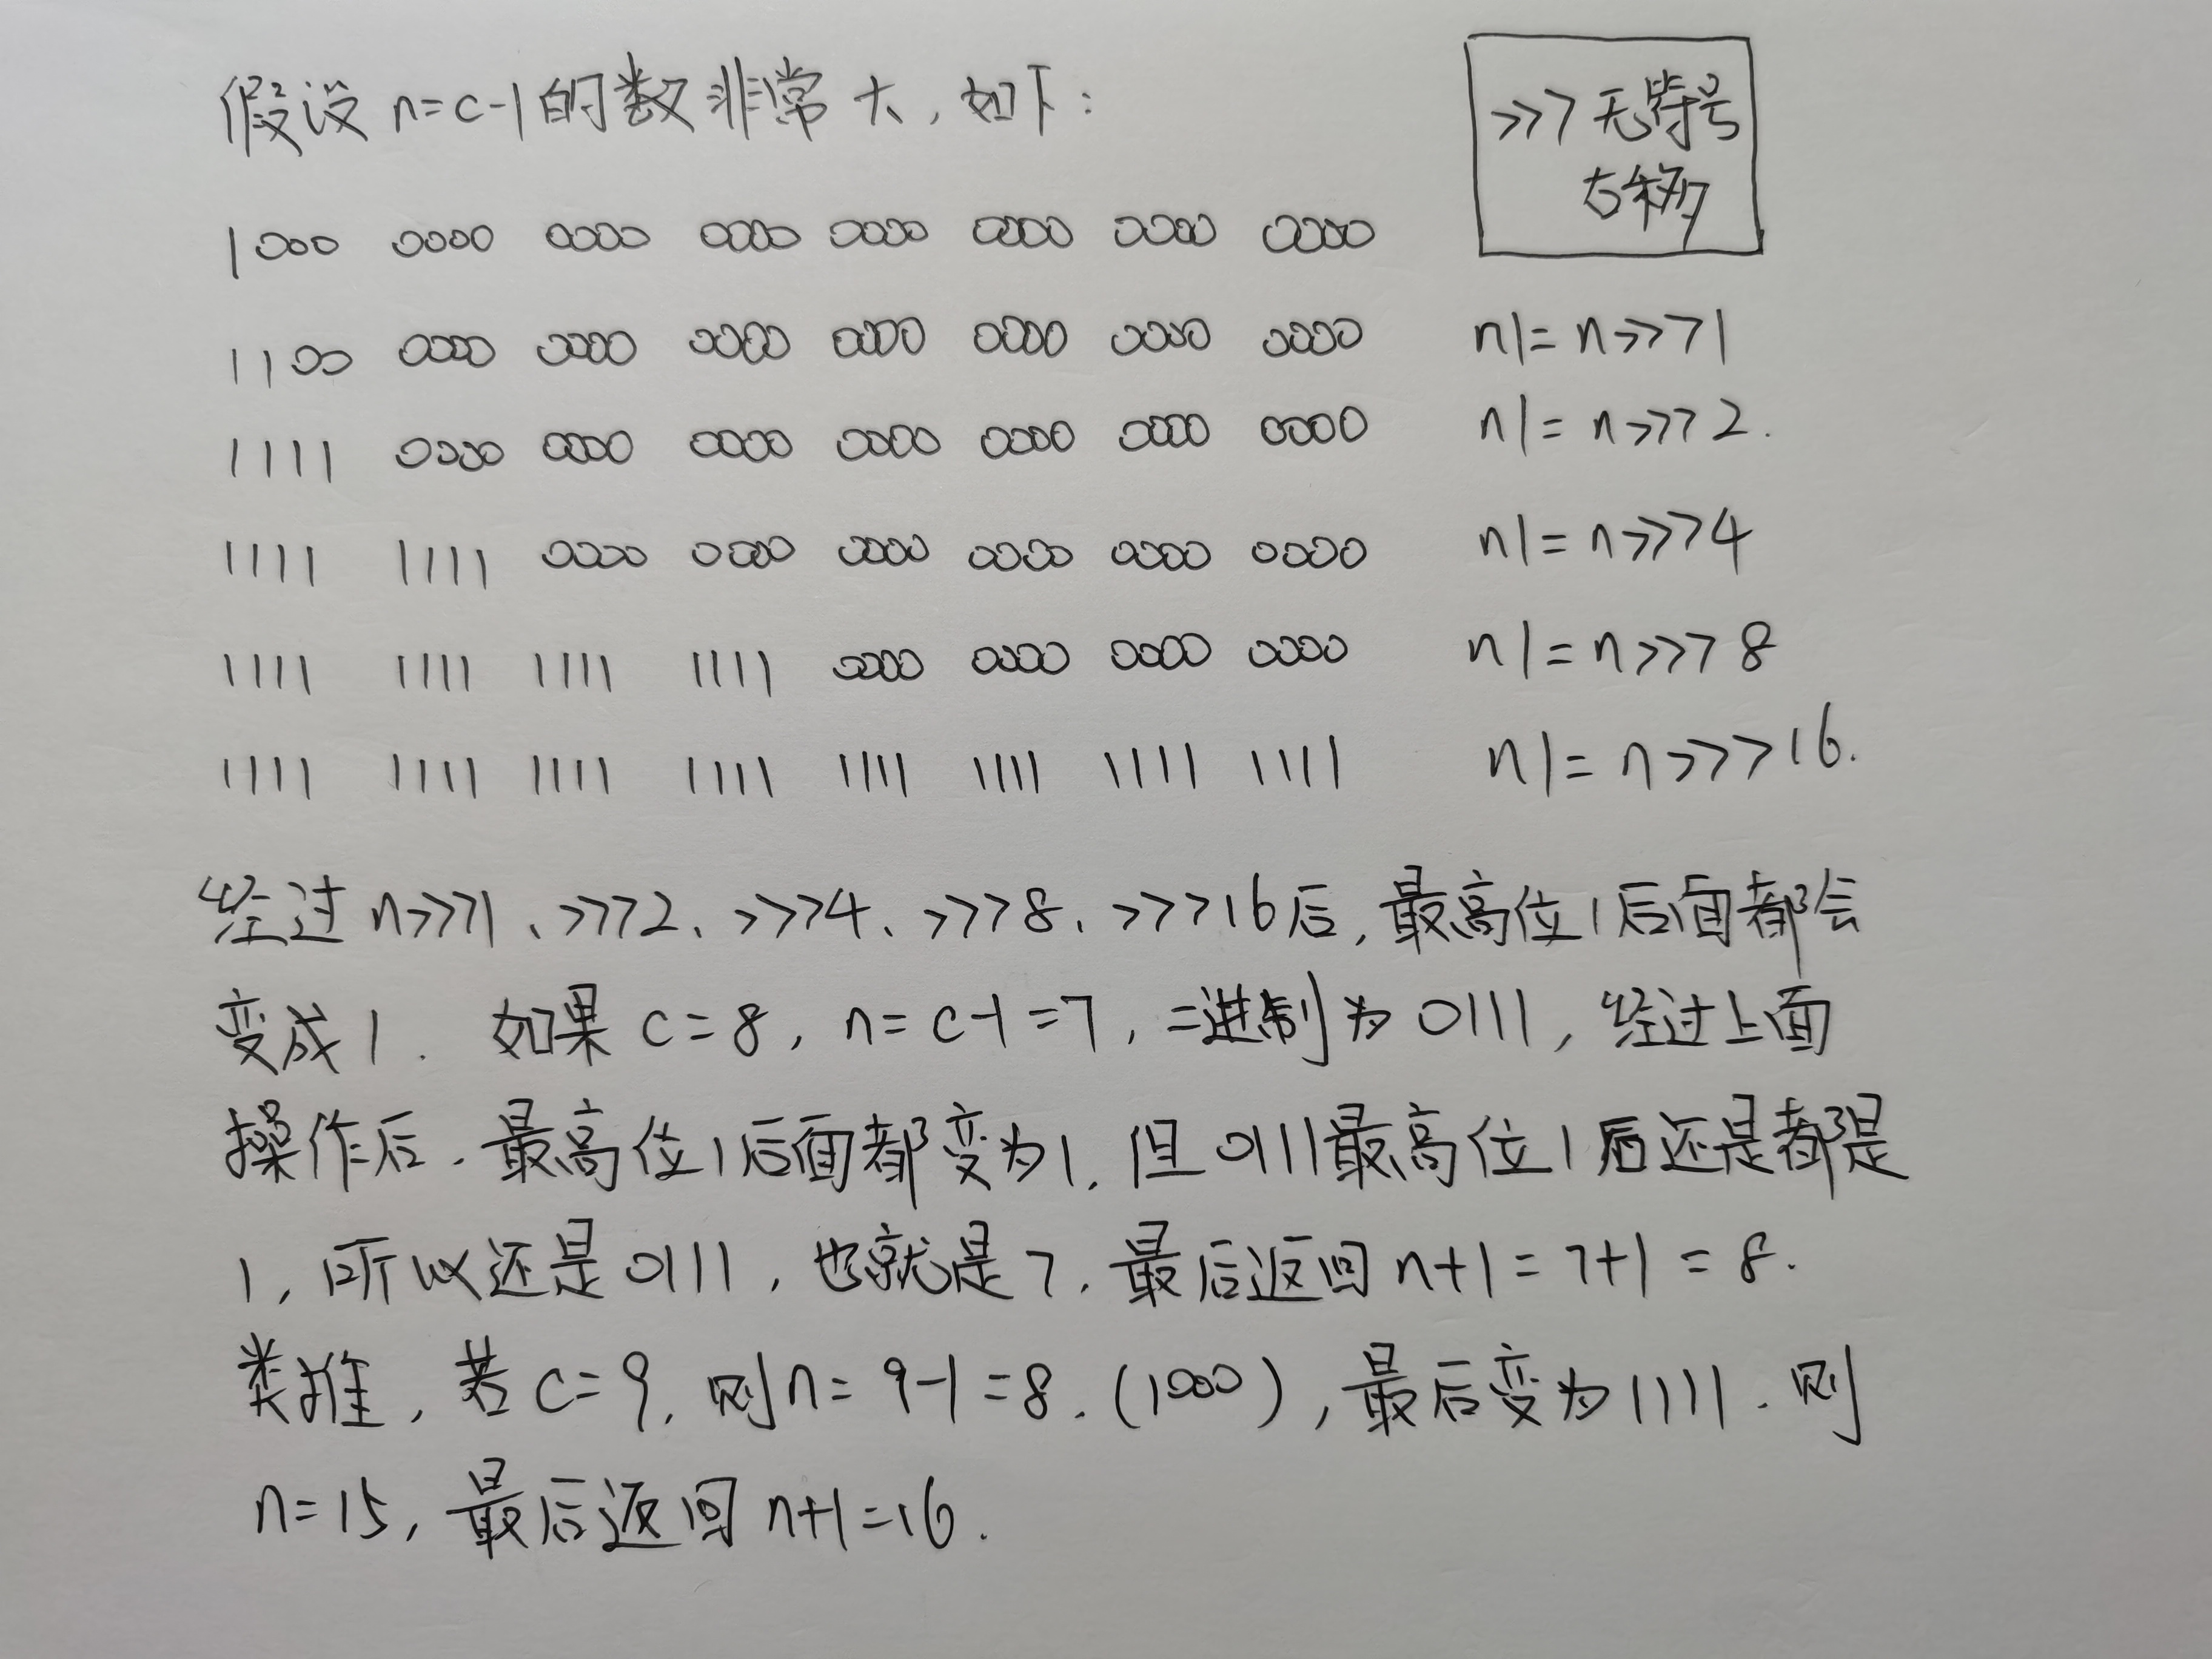 假设 n=c-1的数非常大,如下:
>>>无符号
右移
1000 0000 0000 0000 0000 0000 0000 0000
1100 0000 0000 0000 0000 0000 0000 0000 n|=n>>>1
1111 0000 0000 0000 0000 0000 0000 0000 n|=n>>>2.
1111 1111 0000 0000 0000 0000 0000 0000 n|=n>>>4
1111 1111 1111 1111 0000 0000 0000 0000 n|=n>>>8
1111 1111 1111 1111 1111 1111 1111 1111 n|=n>>>16.
经过n>>>1、>>>2、>>>4、>>>8、>>>16后,最高位1后面都会
变成1. 如果c=8,n=c-1=7,二进制为0111,经过上面
操作后.最高位1后面都变为1.但0111最高位1后还是都是
1,所以还是0111,也就是7.最后返回n+1=7+1=8.
类推,若c=9.则n=9-1=8.(1000),最后变为1111.则
n=15,最后返回n+1=16.